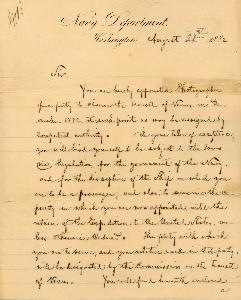 Navy Department,
Washington August 28th 1882
Sir,
You are hereby appointed Photographer
of a party to observe the transit of Venus, in De-
cember 1882, at such point as may be designated by
competent authority. If you take
you will bind yourself to be subject to the laws
and regulations for the government of the Navy,
and for the discipline of the Ship in which you
are to be a passenger, and also, to remain with the
party in which you are now appointed until the
return of the Expedition to the United States, un-
less otherwise ordered. The party with which
you are to serve, and your station in the party,
will be designated by the Commission on the Transit
of Venus. You will find herewith enclosed
a